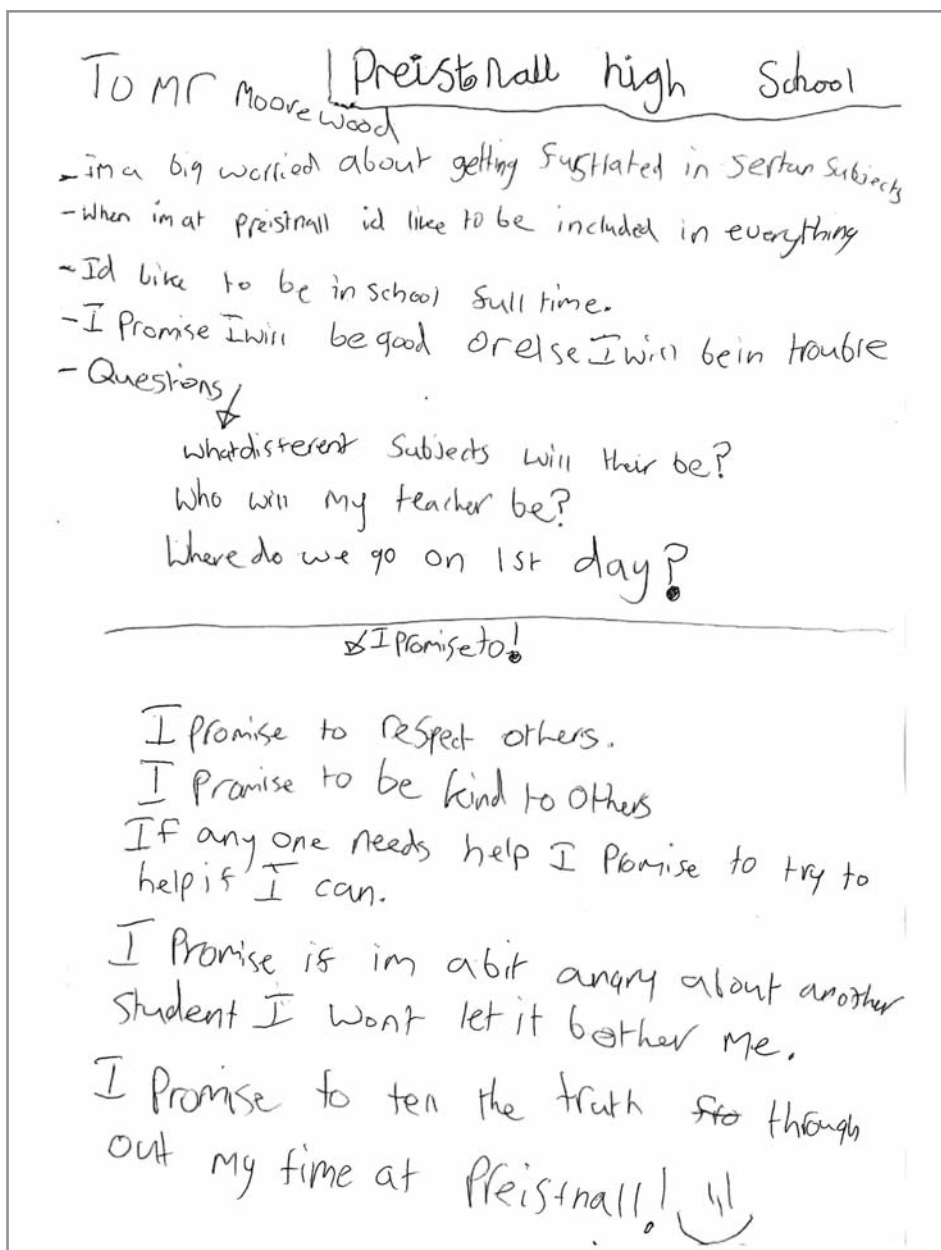 To Mr Moorewood
Preistnall high School
- im a big worried about getting fustlated in sertan subjects
- When im at preistnall id like to be included in everything
- Id like to be in school full time.
- I Promise I will be good or else I will be in trouble
- Questions
what different Subjects will their be?
Who will my teacher be?
Where do we go on 1st day?
I Promise to!
I Promise to respect others.
I Promise to be kind to others
If any one needs help I Promise to try to
help if I can.
I Promise if im a bit angry about another
student I wont let it bother me.
I Promise to tell the truth through
out my time at Preistnall!